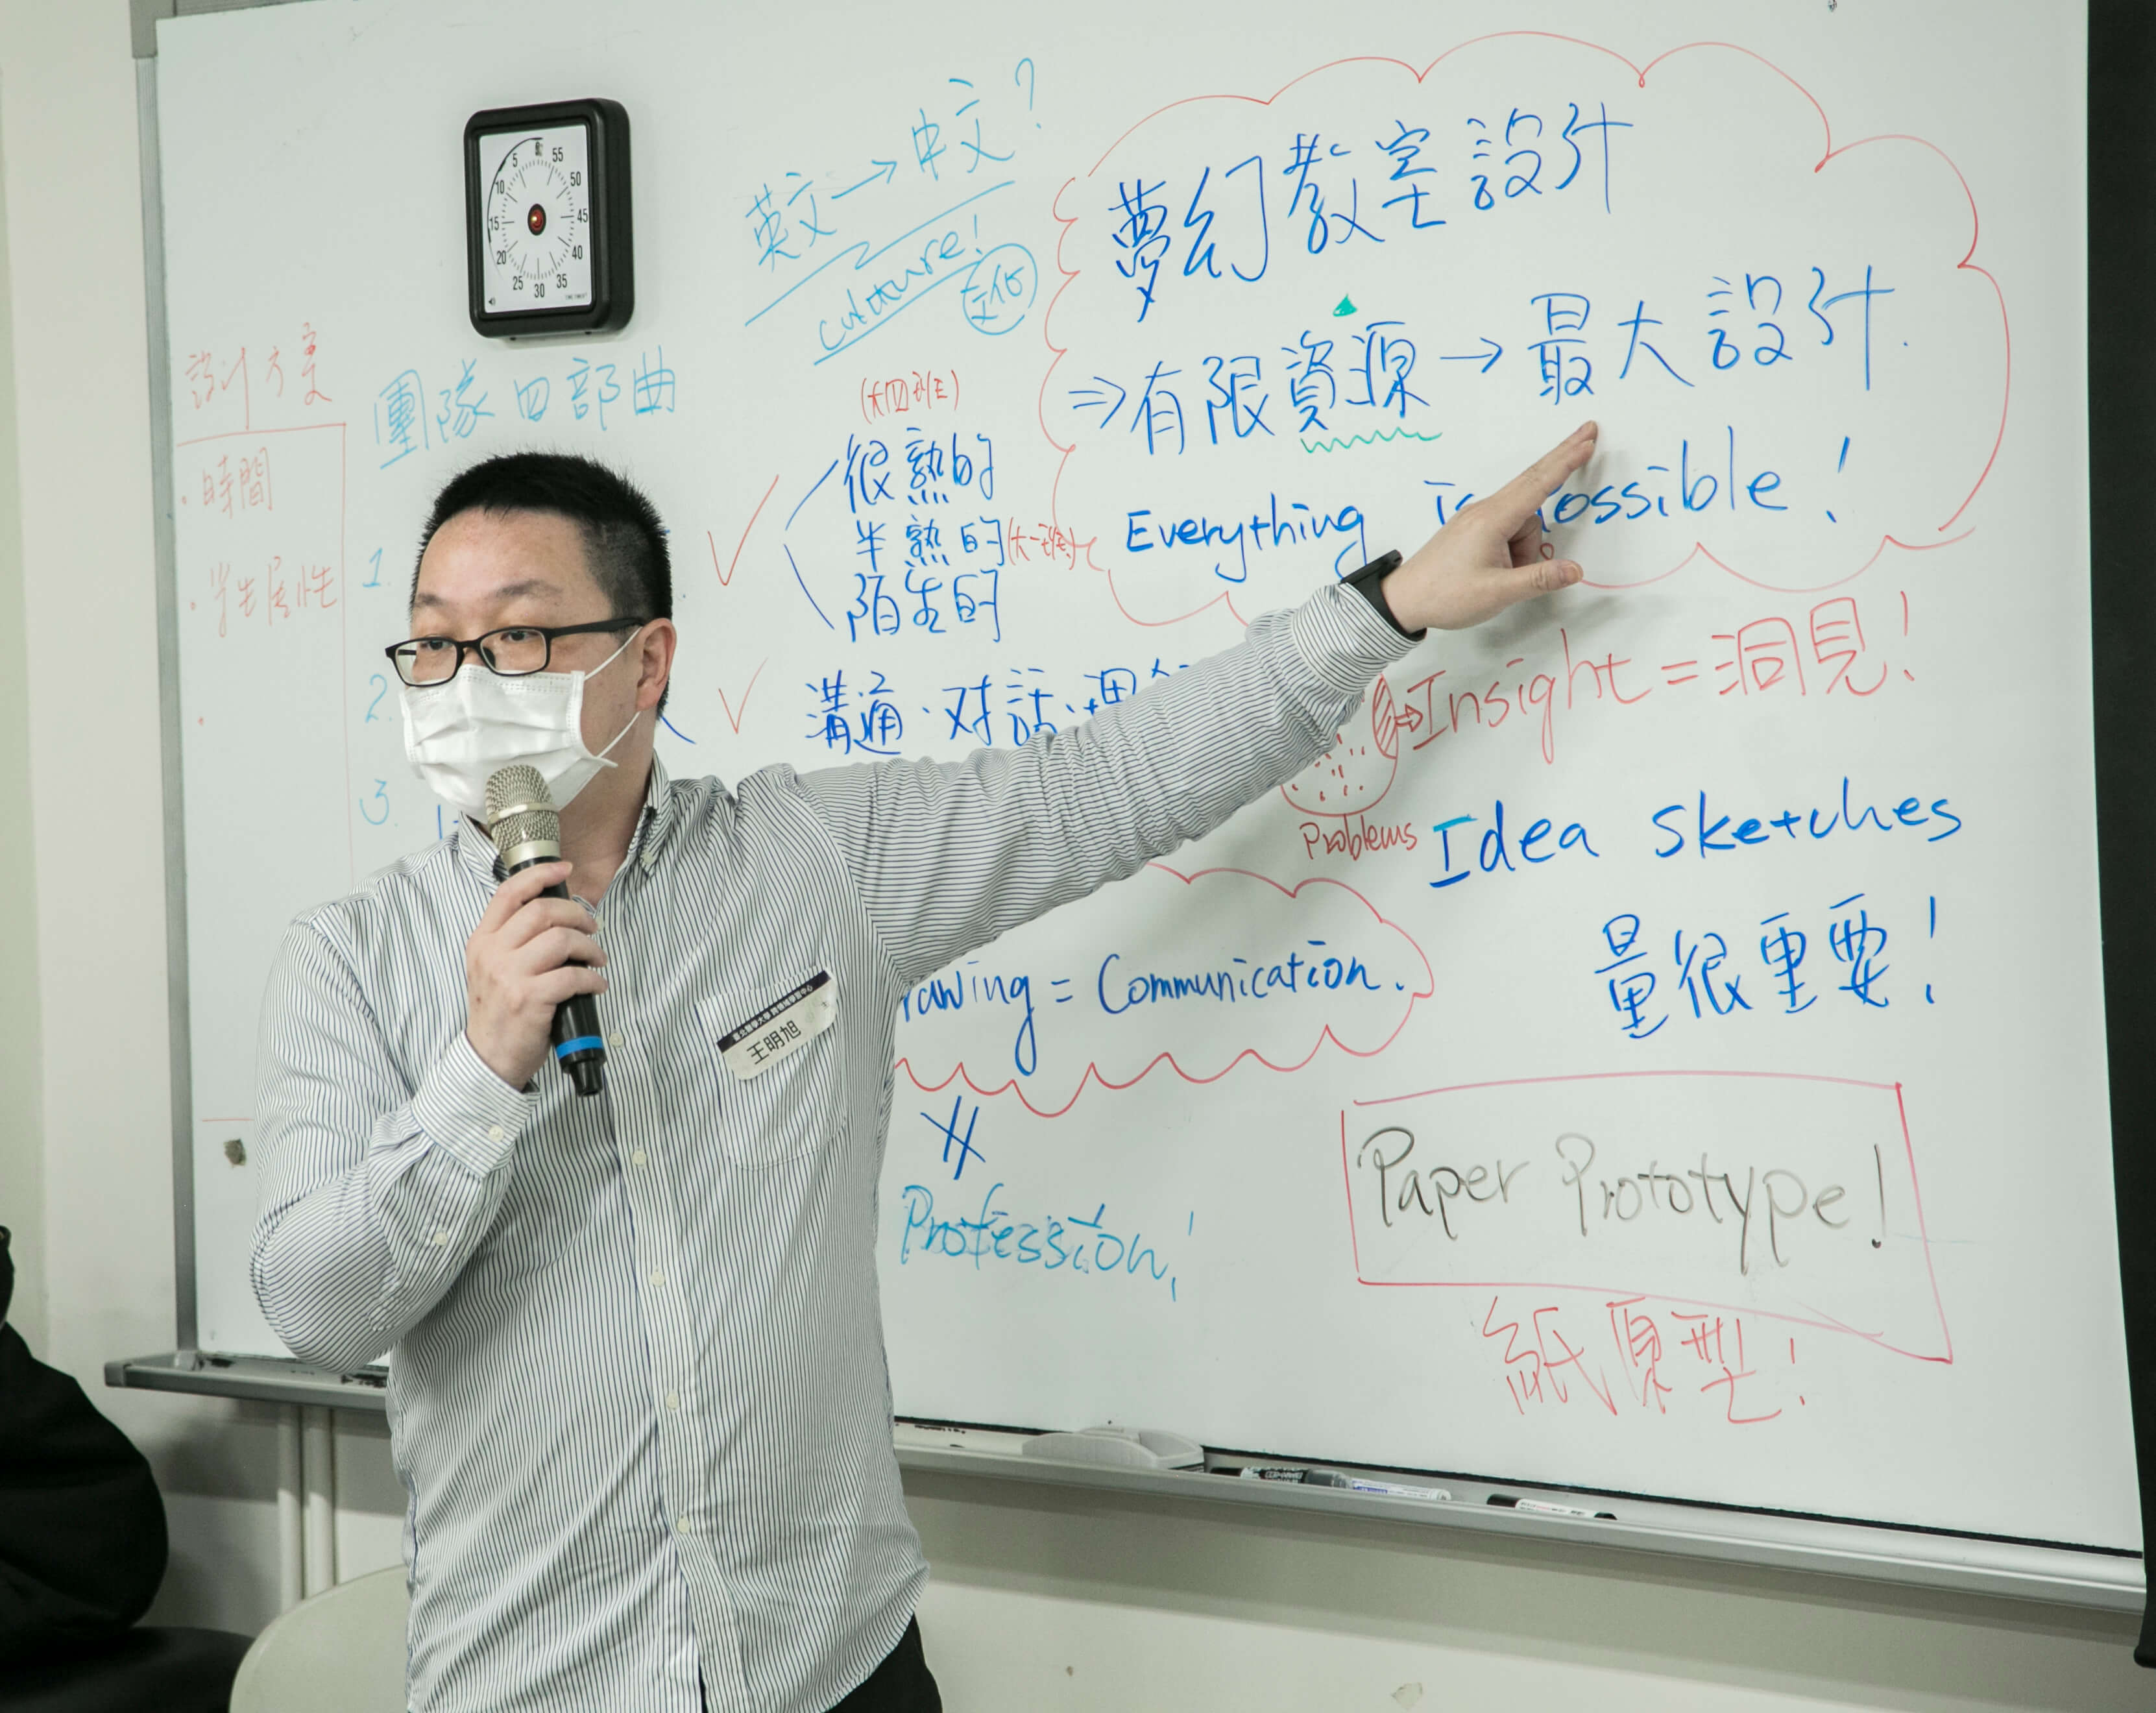 英文→中文?
culature!
文化
夢幻教室設計
⇒有限資源→最大設計.
Everything is possible!
設計方案
・時間
・學生屬性
團隊四部曲
1.
2.
3.
很熟的
半熟的
陌生的
溝通・对話・理
Problems
⇒Insight=洞見!
Idea Sketches
量很重要!
rawing = Communication.
Profession!
Paper Prototype!
紙原型!
臺北醫學大學 跨領域學習中心
王明旭
5
55
10
50
15
45
20
40
25
30
35